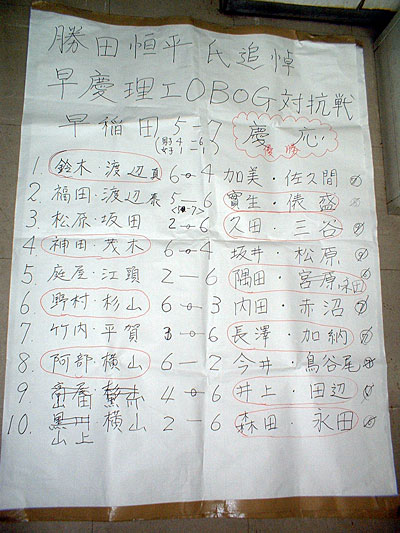 勝田恒平氏追悼
早慶理工OBOG対抗戦
早稲田 5-7 慶応
男子 4-6 優勝
女子 1-1
1. 鈴木・渡辺真 6-4 加美・佐久間
2. 福田・渡辺泰 5-6 寶生・俵盛
3. 松原・坂田 2-6 久田・三谷
4. 神田・茂木 6-4 坂井・松原
5. 庭屋・江頭 2-6 隅田・宮原
6. 野村・杉山 6-3 内田・赤沼
7. 竹内・平賀 3-6 長澤・加納
8. 阿部・横山 6-2 今井・鳥谷尾
9. 4-6 井上・田辺
10. 山上・横山 2-6 森田・永田